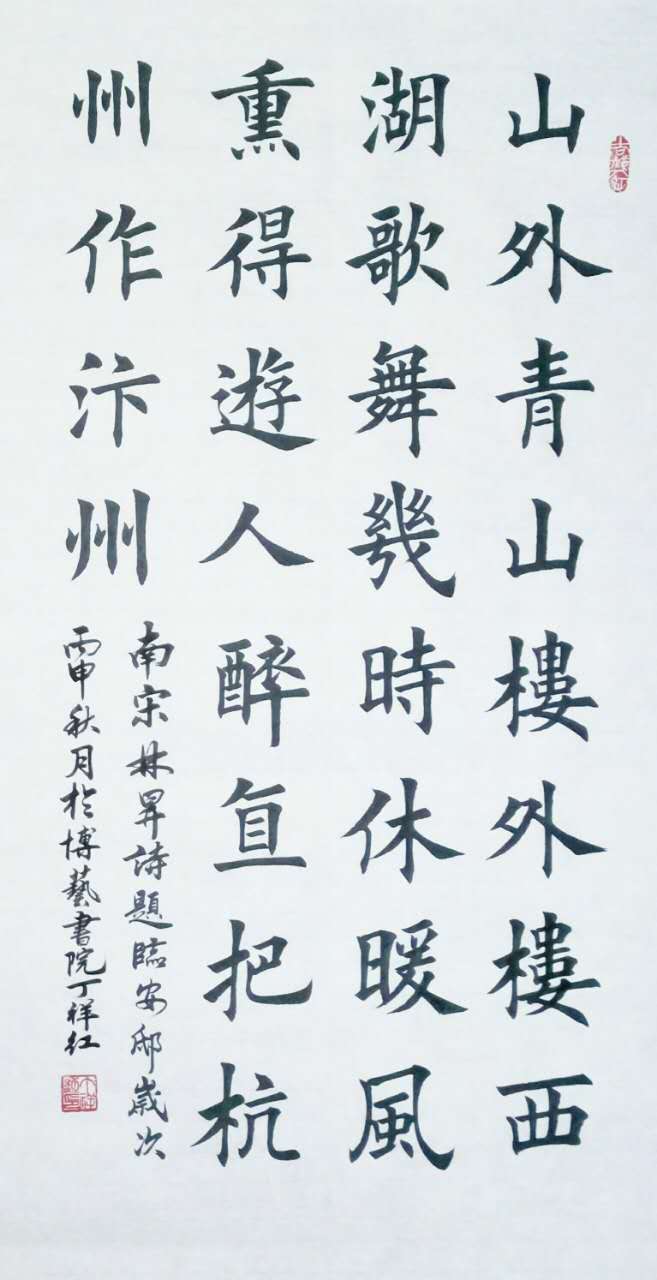 山外青山樓外樓西
湖歌舞幾時休暖風
熏得遊人醉直把杭
州作汴州
南宋林昇詩題臨安邸歲次
丙申秋月於博藝書院丁祥红